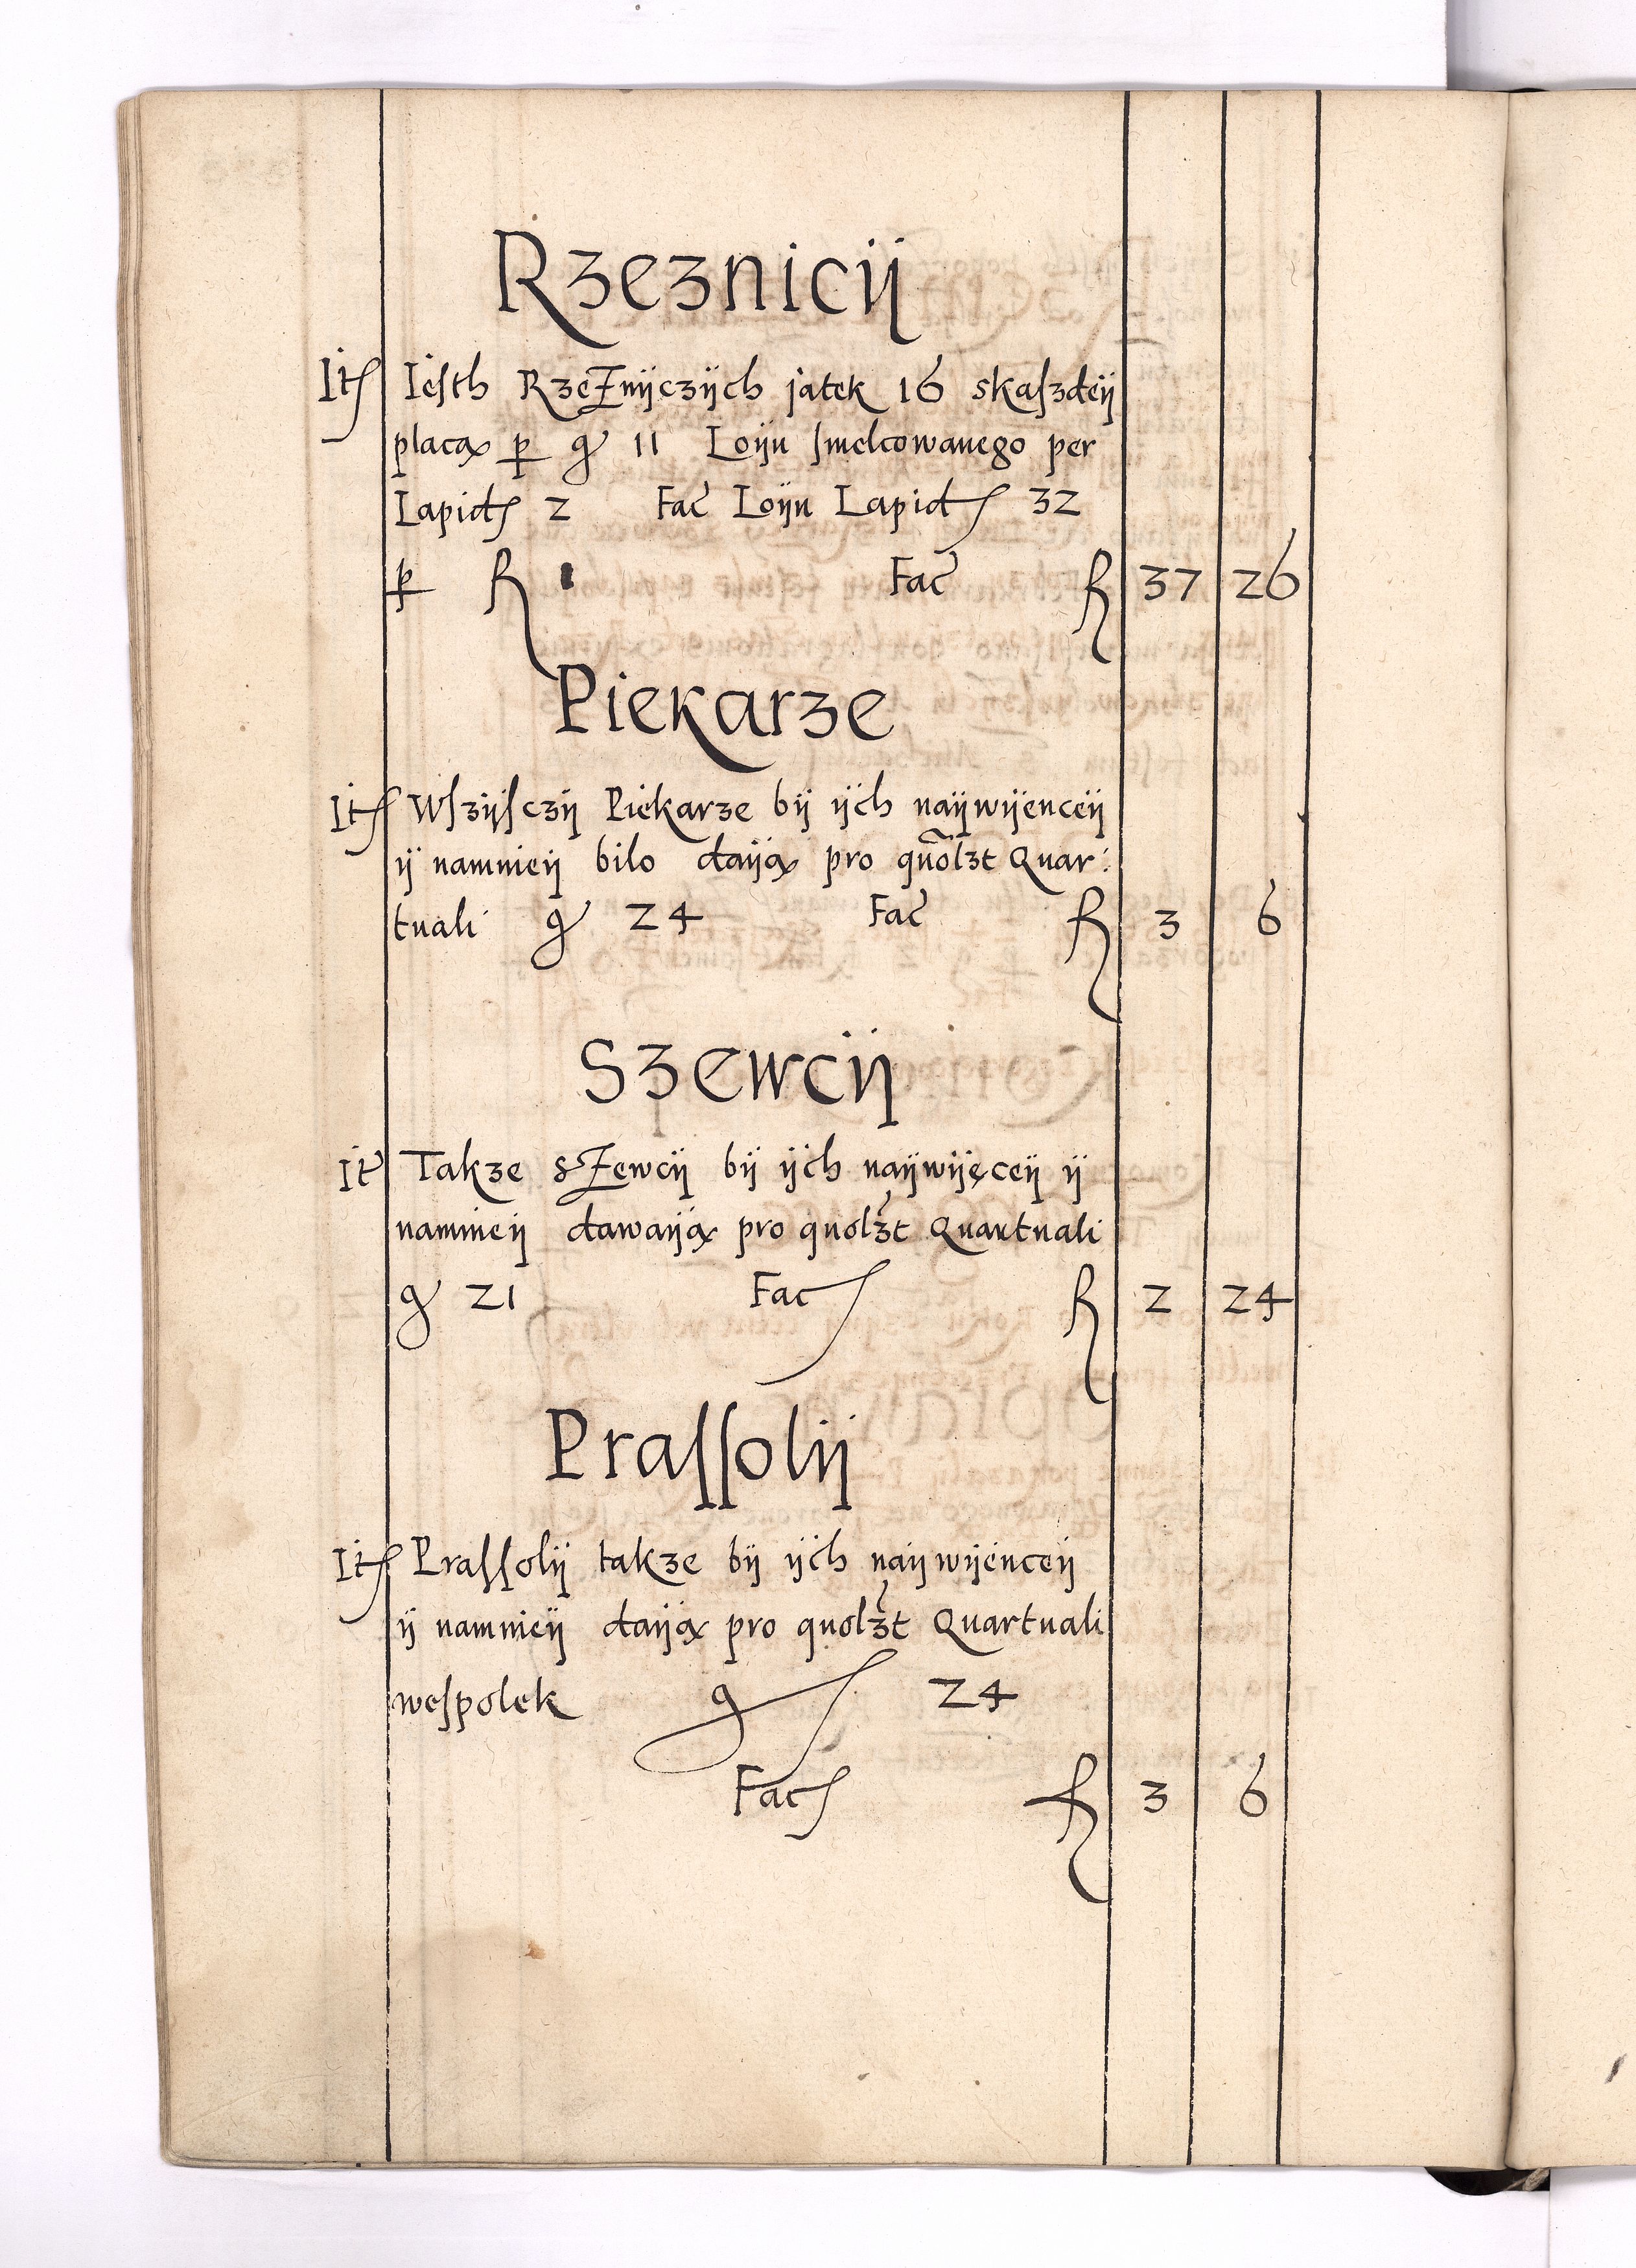 Rzeznicÿ
Itꝭ Iesth RzeZnÿczÿch jatek 16 skaſzdeÿ
placą ꝑ gr 11 Loÿu ſmelcowanego per
Lapidꝭ 2 Fac Loÿu Lapidꝭ 32
ꝑ R 1 Fac R 37 26
Piekarze
Itꝭ Wſzÿſczÿ Piekarze bÿ ÿch naÿwÿenceÿ
ÿ namnieÿ bilo daÿą pro quolzt Quar:
tuali gr 24 Fac R 3 6
Szewcÿ
It Takze sZewcÿ bÿ ÿch naÿwÿęceÿ ÿ
namnieÿ dawaÿą pro quolzt Quartuali
gr 21 Fac R 2 24
Praſſolÿ
Itꝭ Praſſolÿ takze bÿ ÿch naÿwÿenceÿ
ÿ namnieÿ daÿą pro quolzt Quartuali
weſpolek gr 24
Fac R 3 6